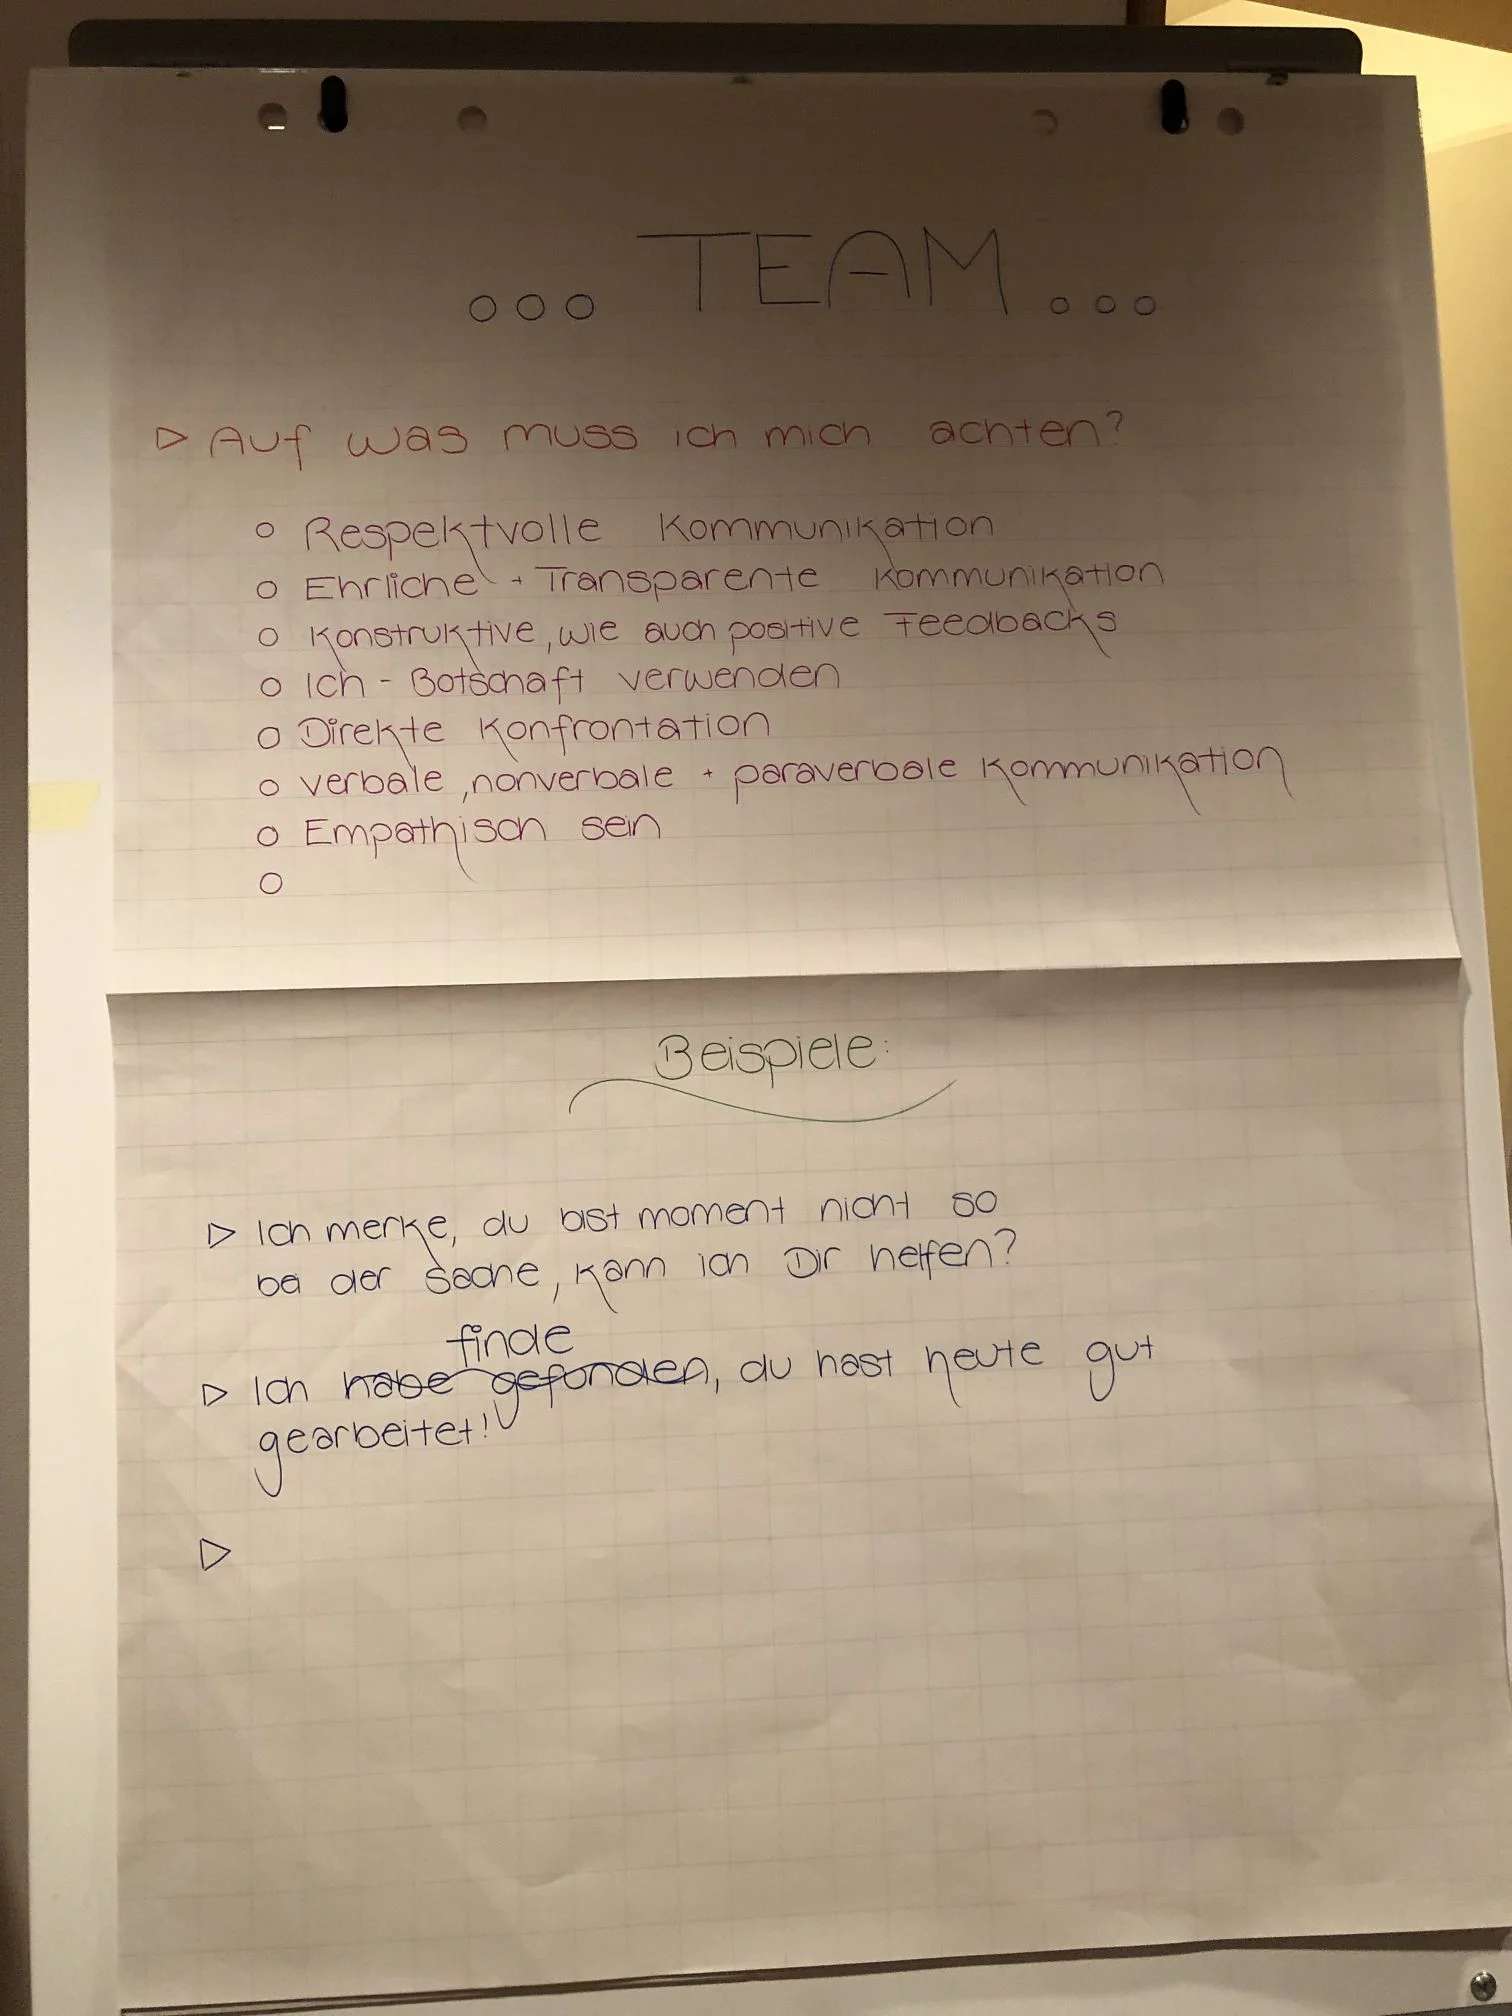 ... TEAM ...
▷ Auf was muss ich mich achten?
○ Respektvolle Kommunikation
○ Ehrliche + Transparente Kommunikation
○ Konstruktive, wie auch positive Feedbacks
○ Ich - Botschaft verwenden
○ Direkte Konfrontation
○ verbale, nonverbale + paraverbale Kommunikation
○ Empathisch sein
○
Beispiele:
▷ Ich merke, du bist moment nicht so
bei der Sache, kann ich Dir helfen?
finde
▷ Ich habe gefunden, du hast heute gut
gearbeitet!
▷